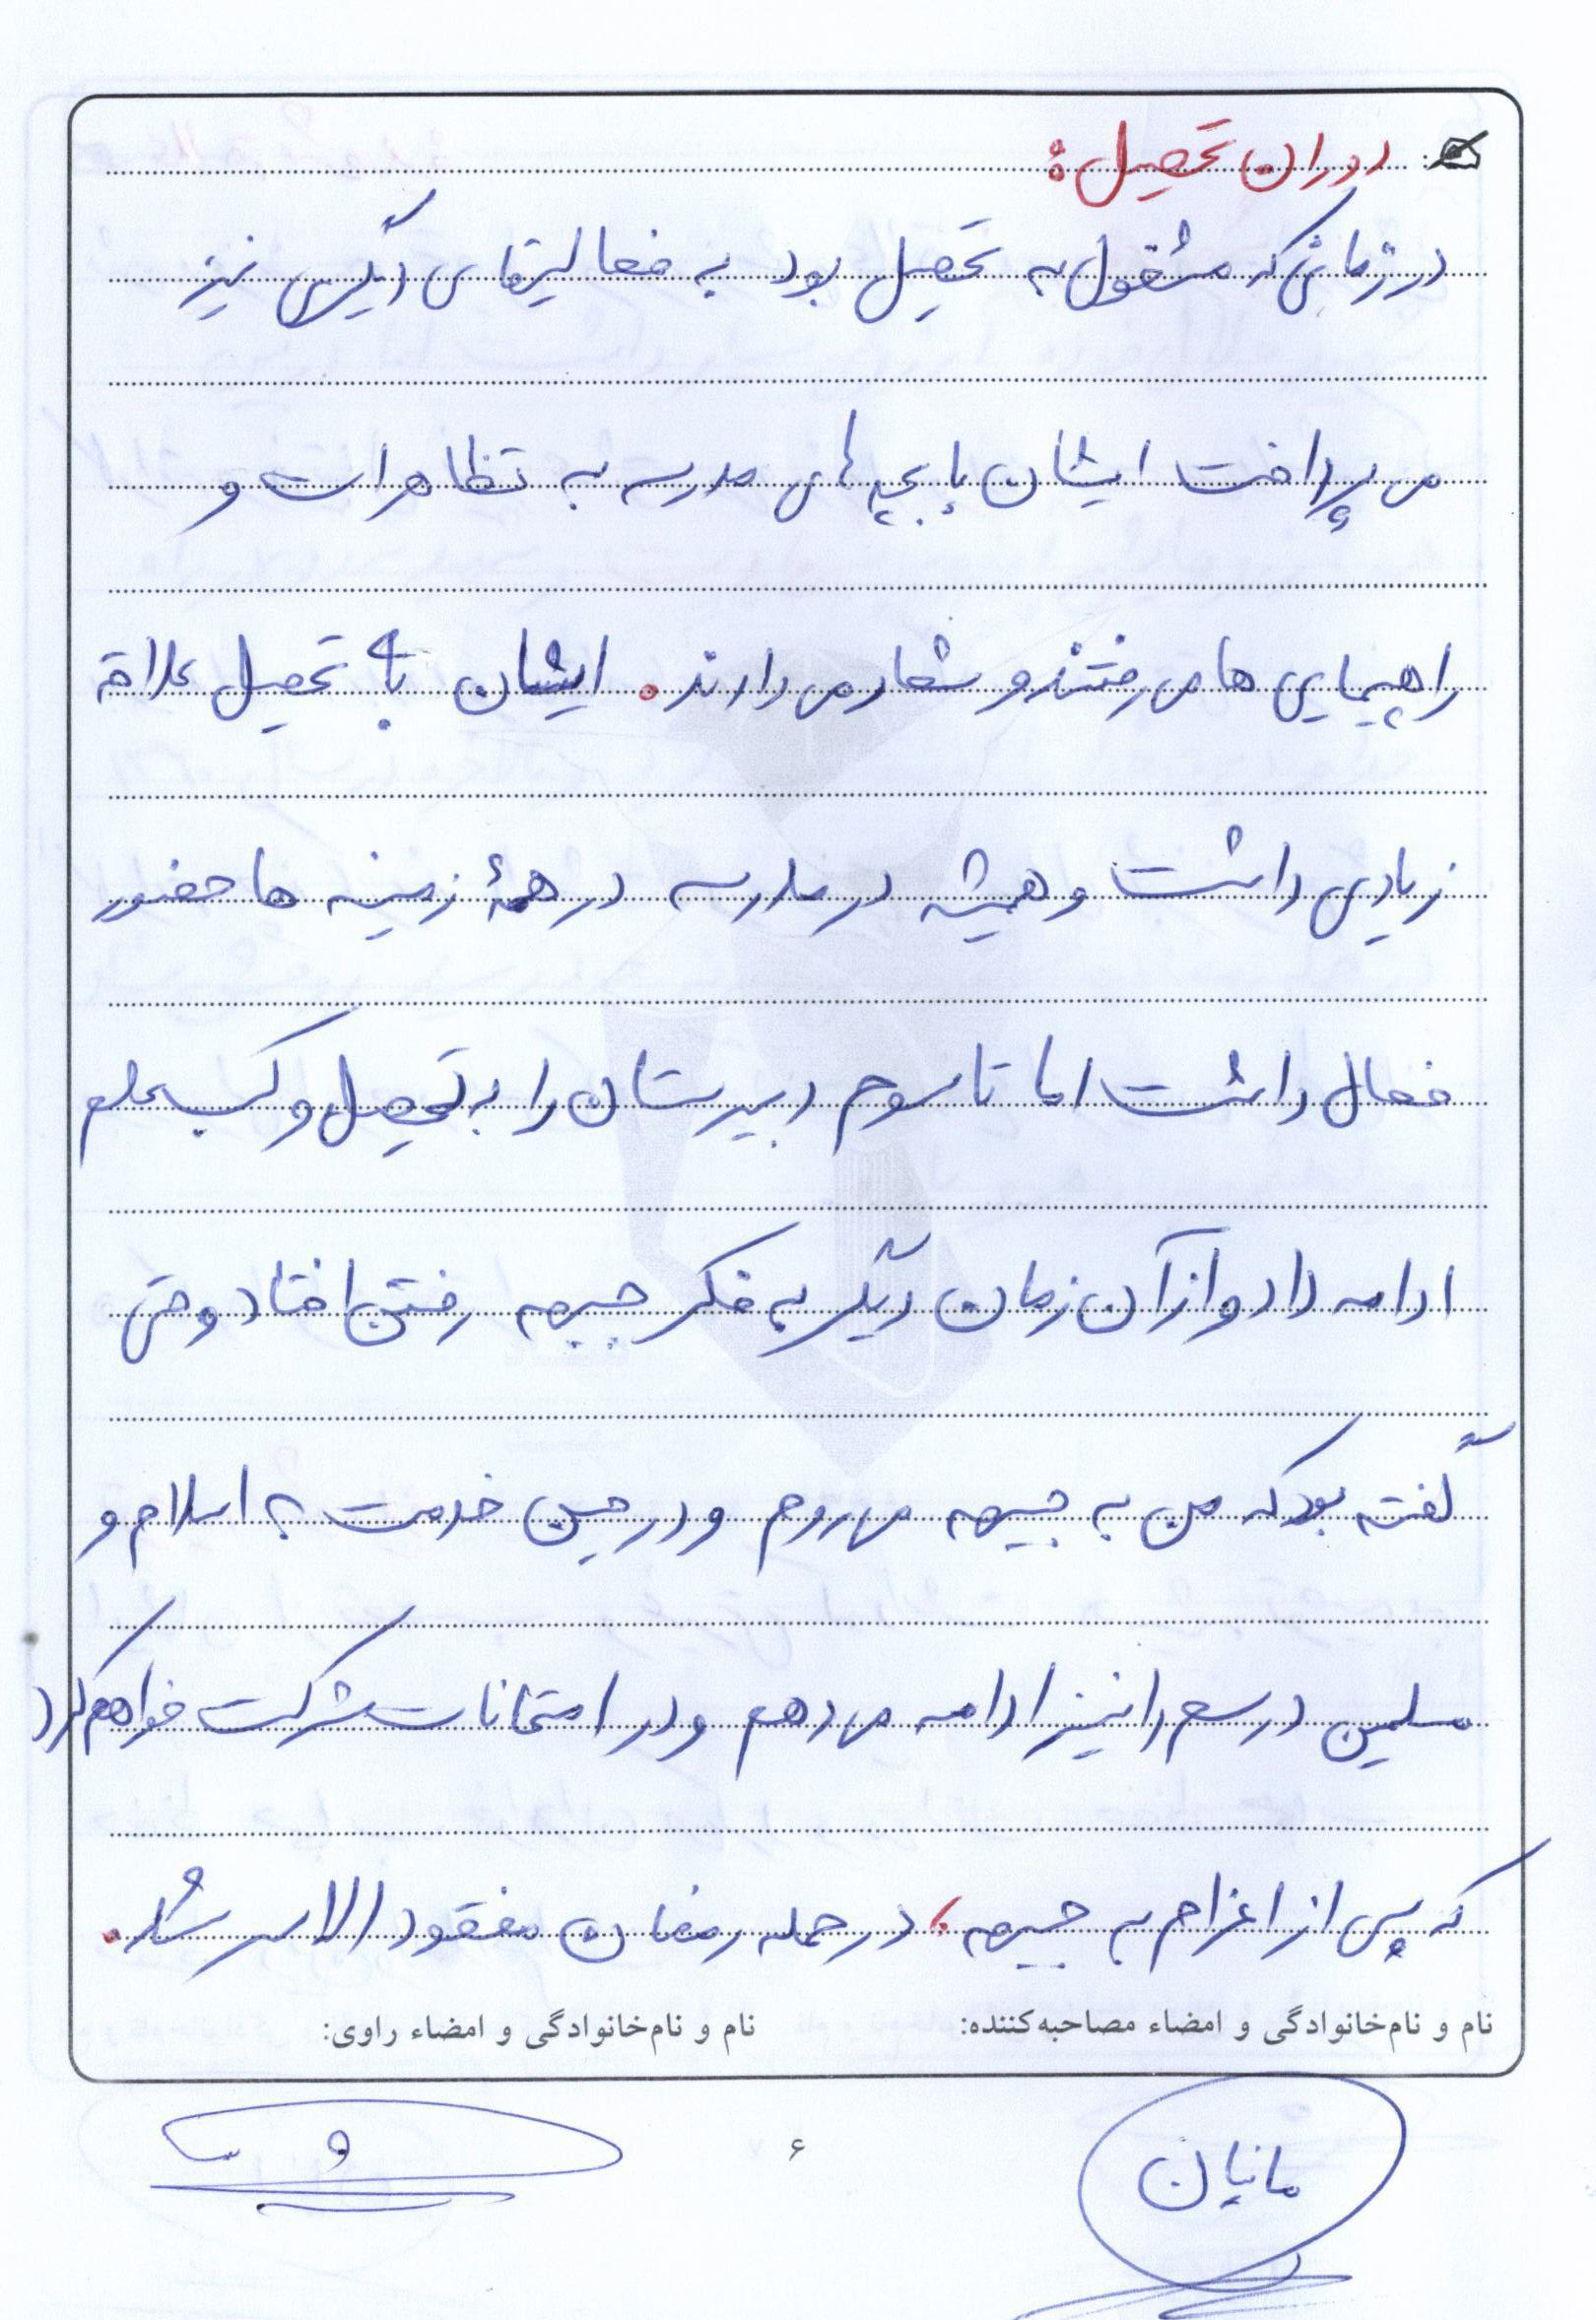 دوران تحصیل:
در زمانی که مشغول به تحصیل بود به فعالیتهای دیگری نیز
می پرداخت ایشان با بچه های مدرسه به تظاهرات و
راهپیمایی ها می رفتند و شعار می دادند. ایشان به تحصیل علاقه
زیادی داشت و همیشه در مدرسه در همهٔ زمینه ها حضور
فعال داشت اما تا سوم دبیرستان را به تحصیل و کسب علم
ادامه داد و از آن زمان دیگر به فکر جبهه رفتن افتاد و حتی
گفته بود که من به جبهه می روم و در حین خدمت به اسلام و
مسلمین درسم را نیز ادامه می دهم و در امتحانات شرکت خواهم کرد
که پس از اعزام به جبهه، در حمله رمضان مفقود الاثر شد.
نام و نام‌خانوادگی و امضاء مصاحبه‌کننده: نام و نام‌خانوادگی و امضاء راوی:
مانیان
۶